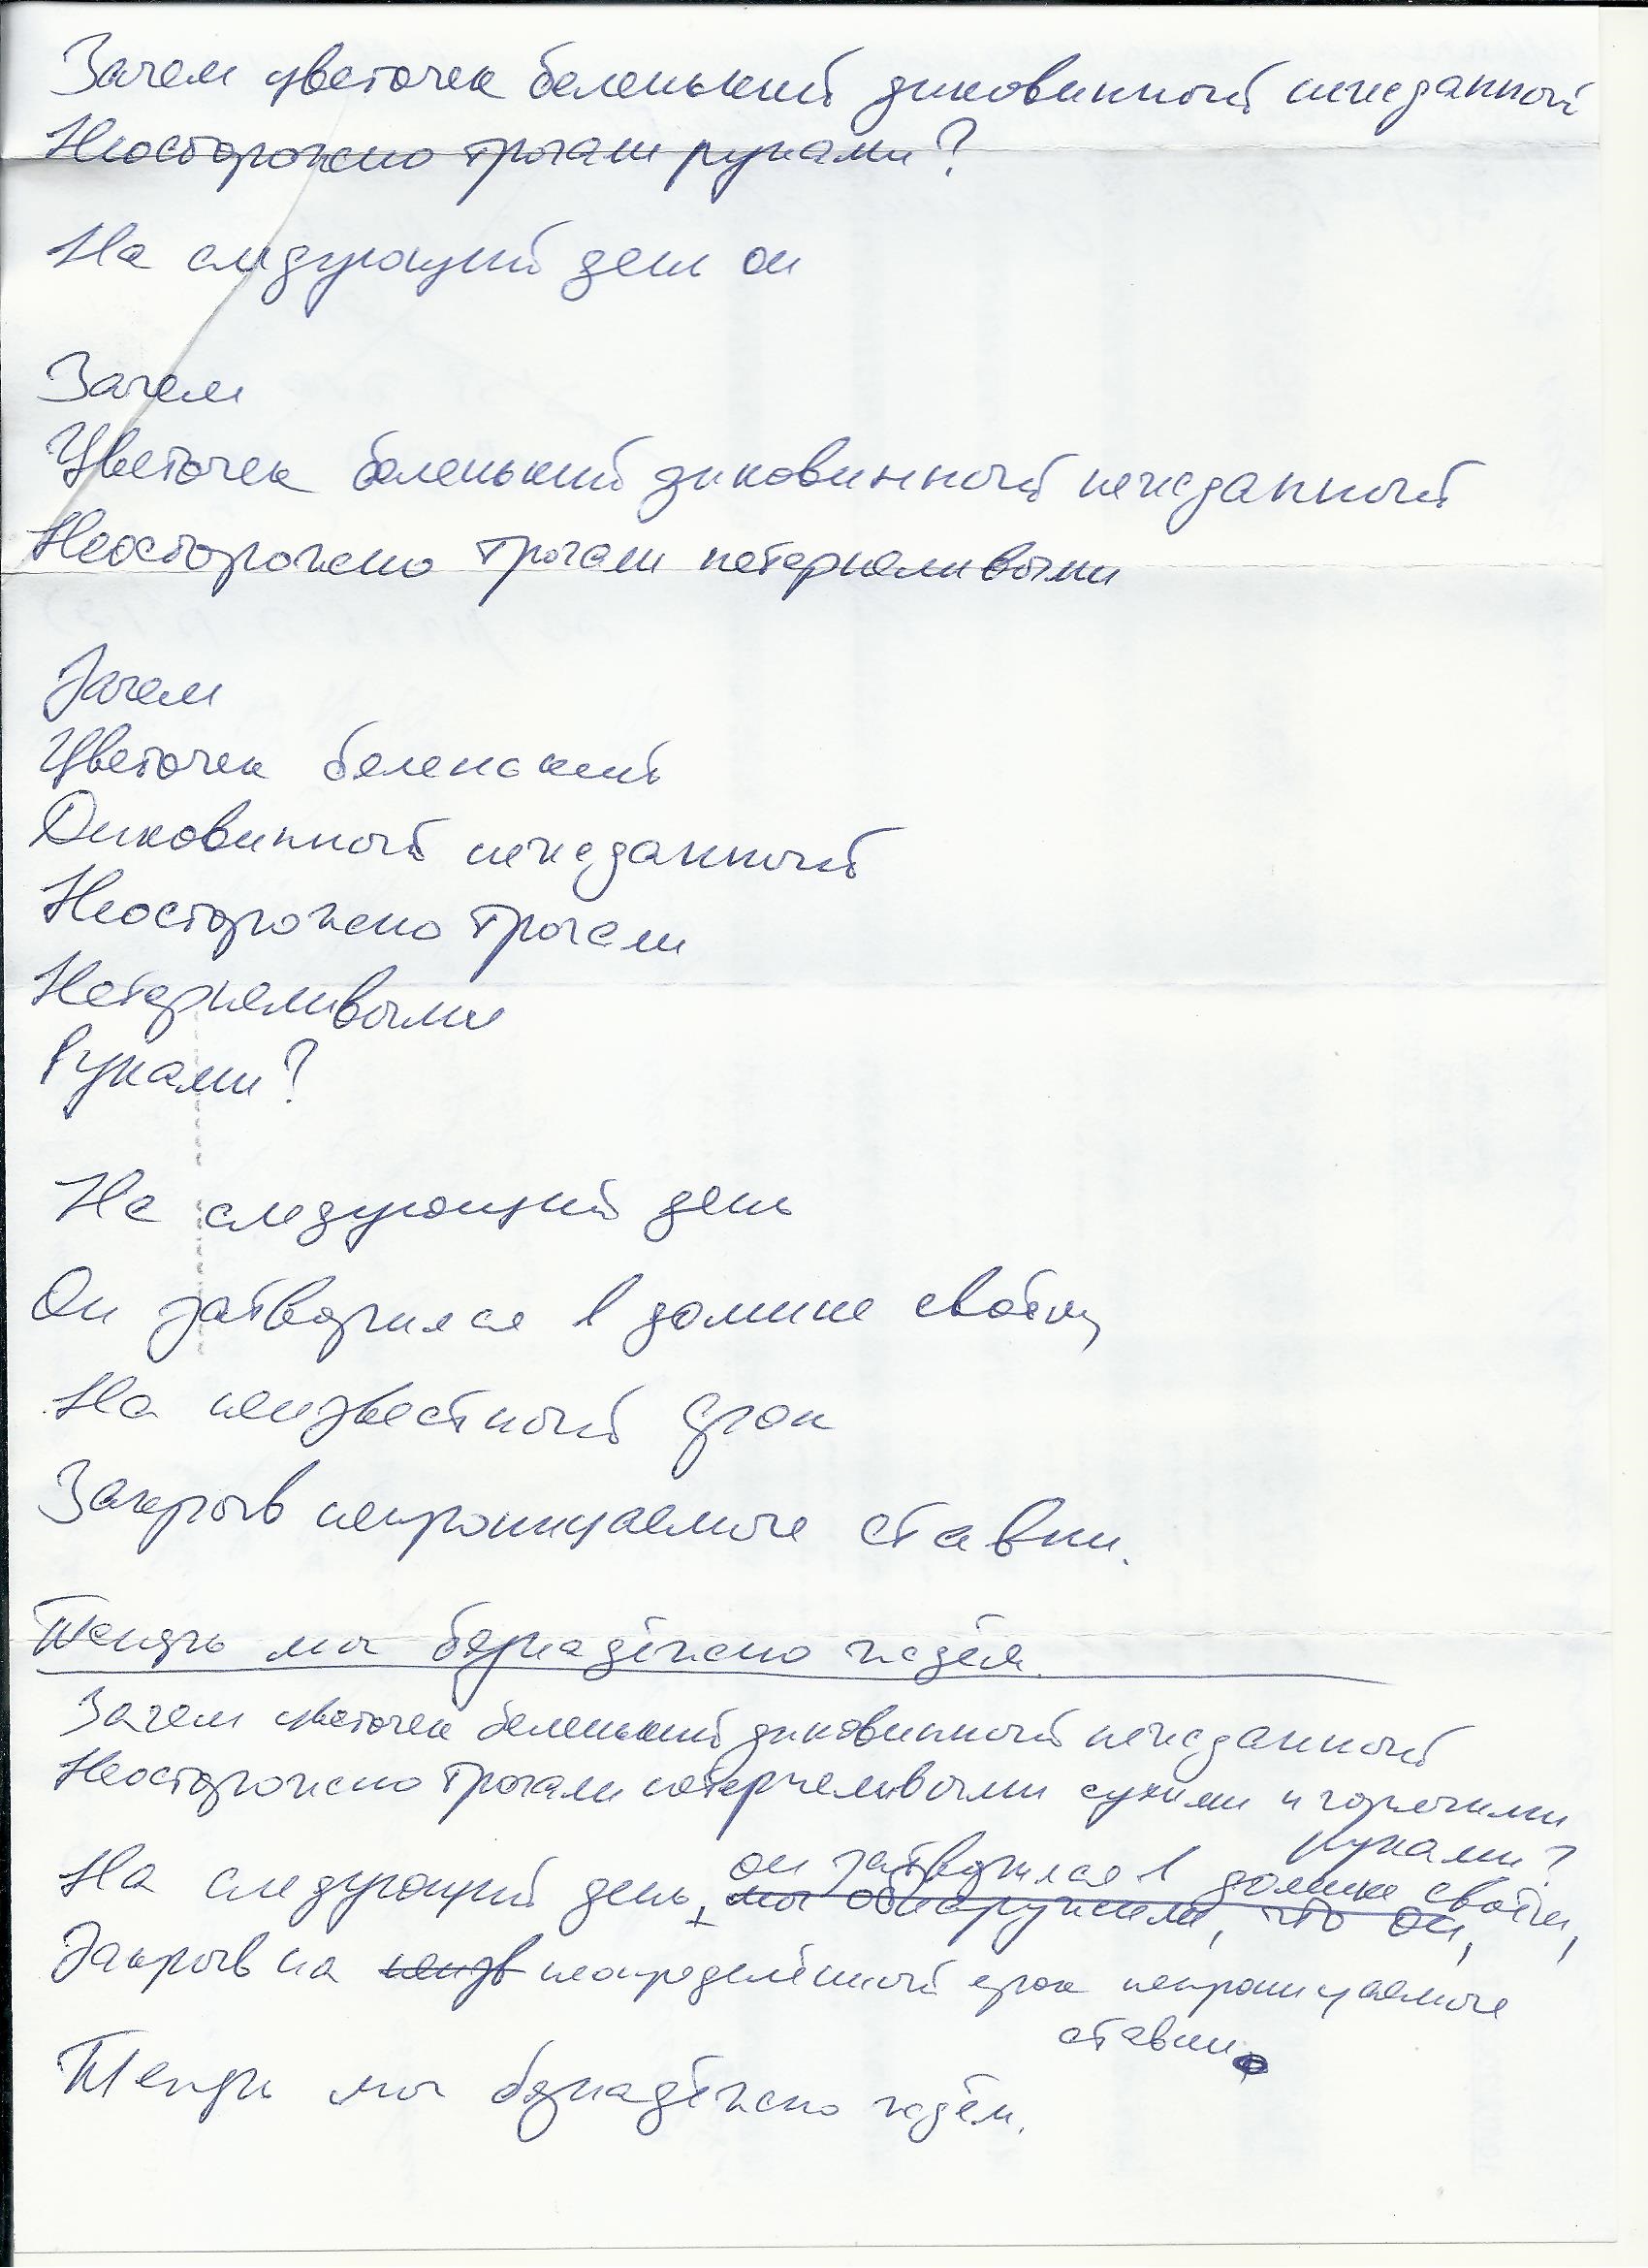 Зачем цветочек беленький диковинный нежданный
Неосторожно трогали руками?
На следующий день он
Зачем
Цветочек беленький диковинный нежданный
Неосторожно трогали нетерпеливыми
Зачем
Цветочек беленький
Диковинный нежданный
Неосторожно трогали
Нетерпеливыми
Руками?
На следующий день
Он затворился в домике своём,
На неизвестный срок
Закрыв непроницаемые ставни.
Теперь мы безнадёжно ждём.
Зачем цветочек беленький диковинный нежданный
Неосторожно трогали нетерпеливыми сухими и горячими
руками?
он затворился в домике своём,
На следующий день, мы обнаружили, что он,
Закрыв на неизв неопределённый срок непроницаемые
ставни.
Теперь мы безнадёжно ждём.